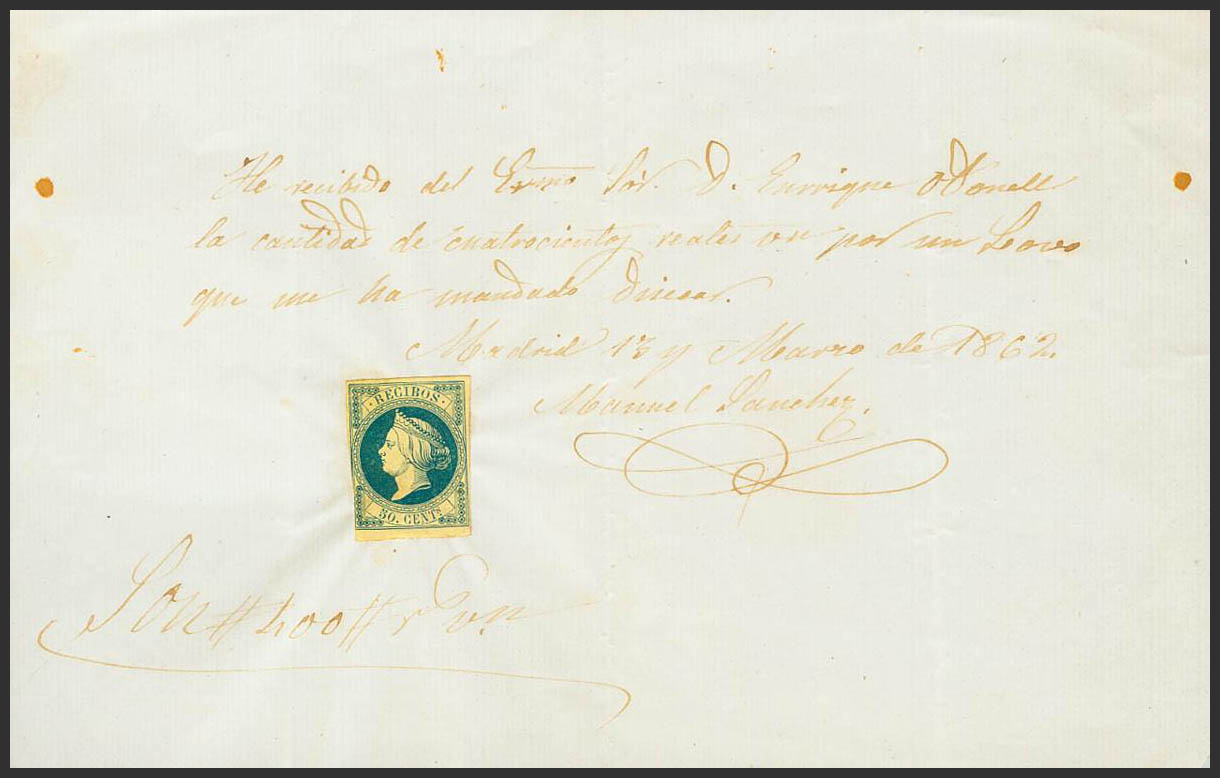 He recibido del Exmo Sor. D. Enrrique ODonell
la cantidad de cuatrocientos reales vn por un
que me ha mandado
Madrid 13 y Marzo de 1862.
Manuel Sanchez.
RECIBOS
50. CENTs
Son # 400 # rs vn